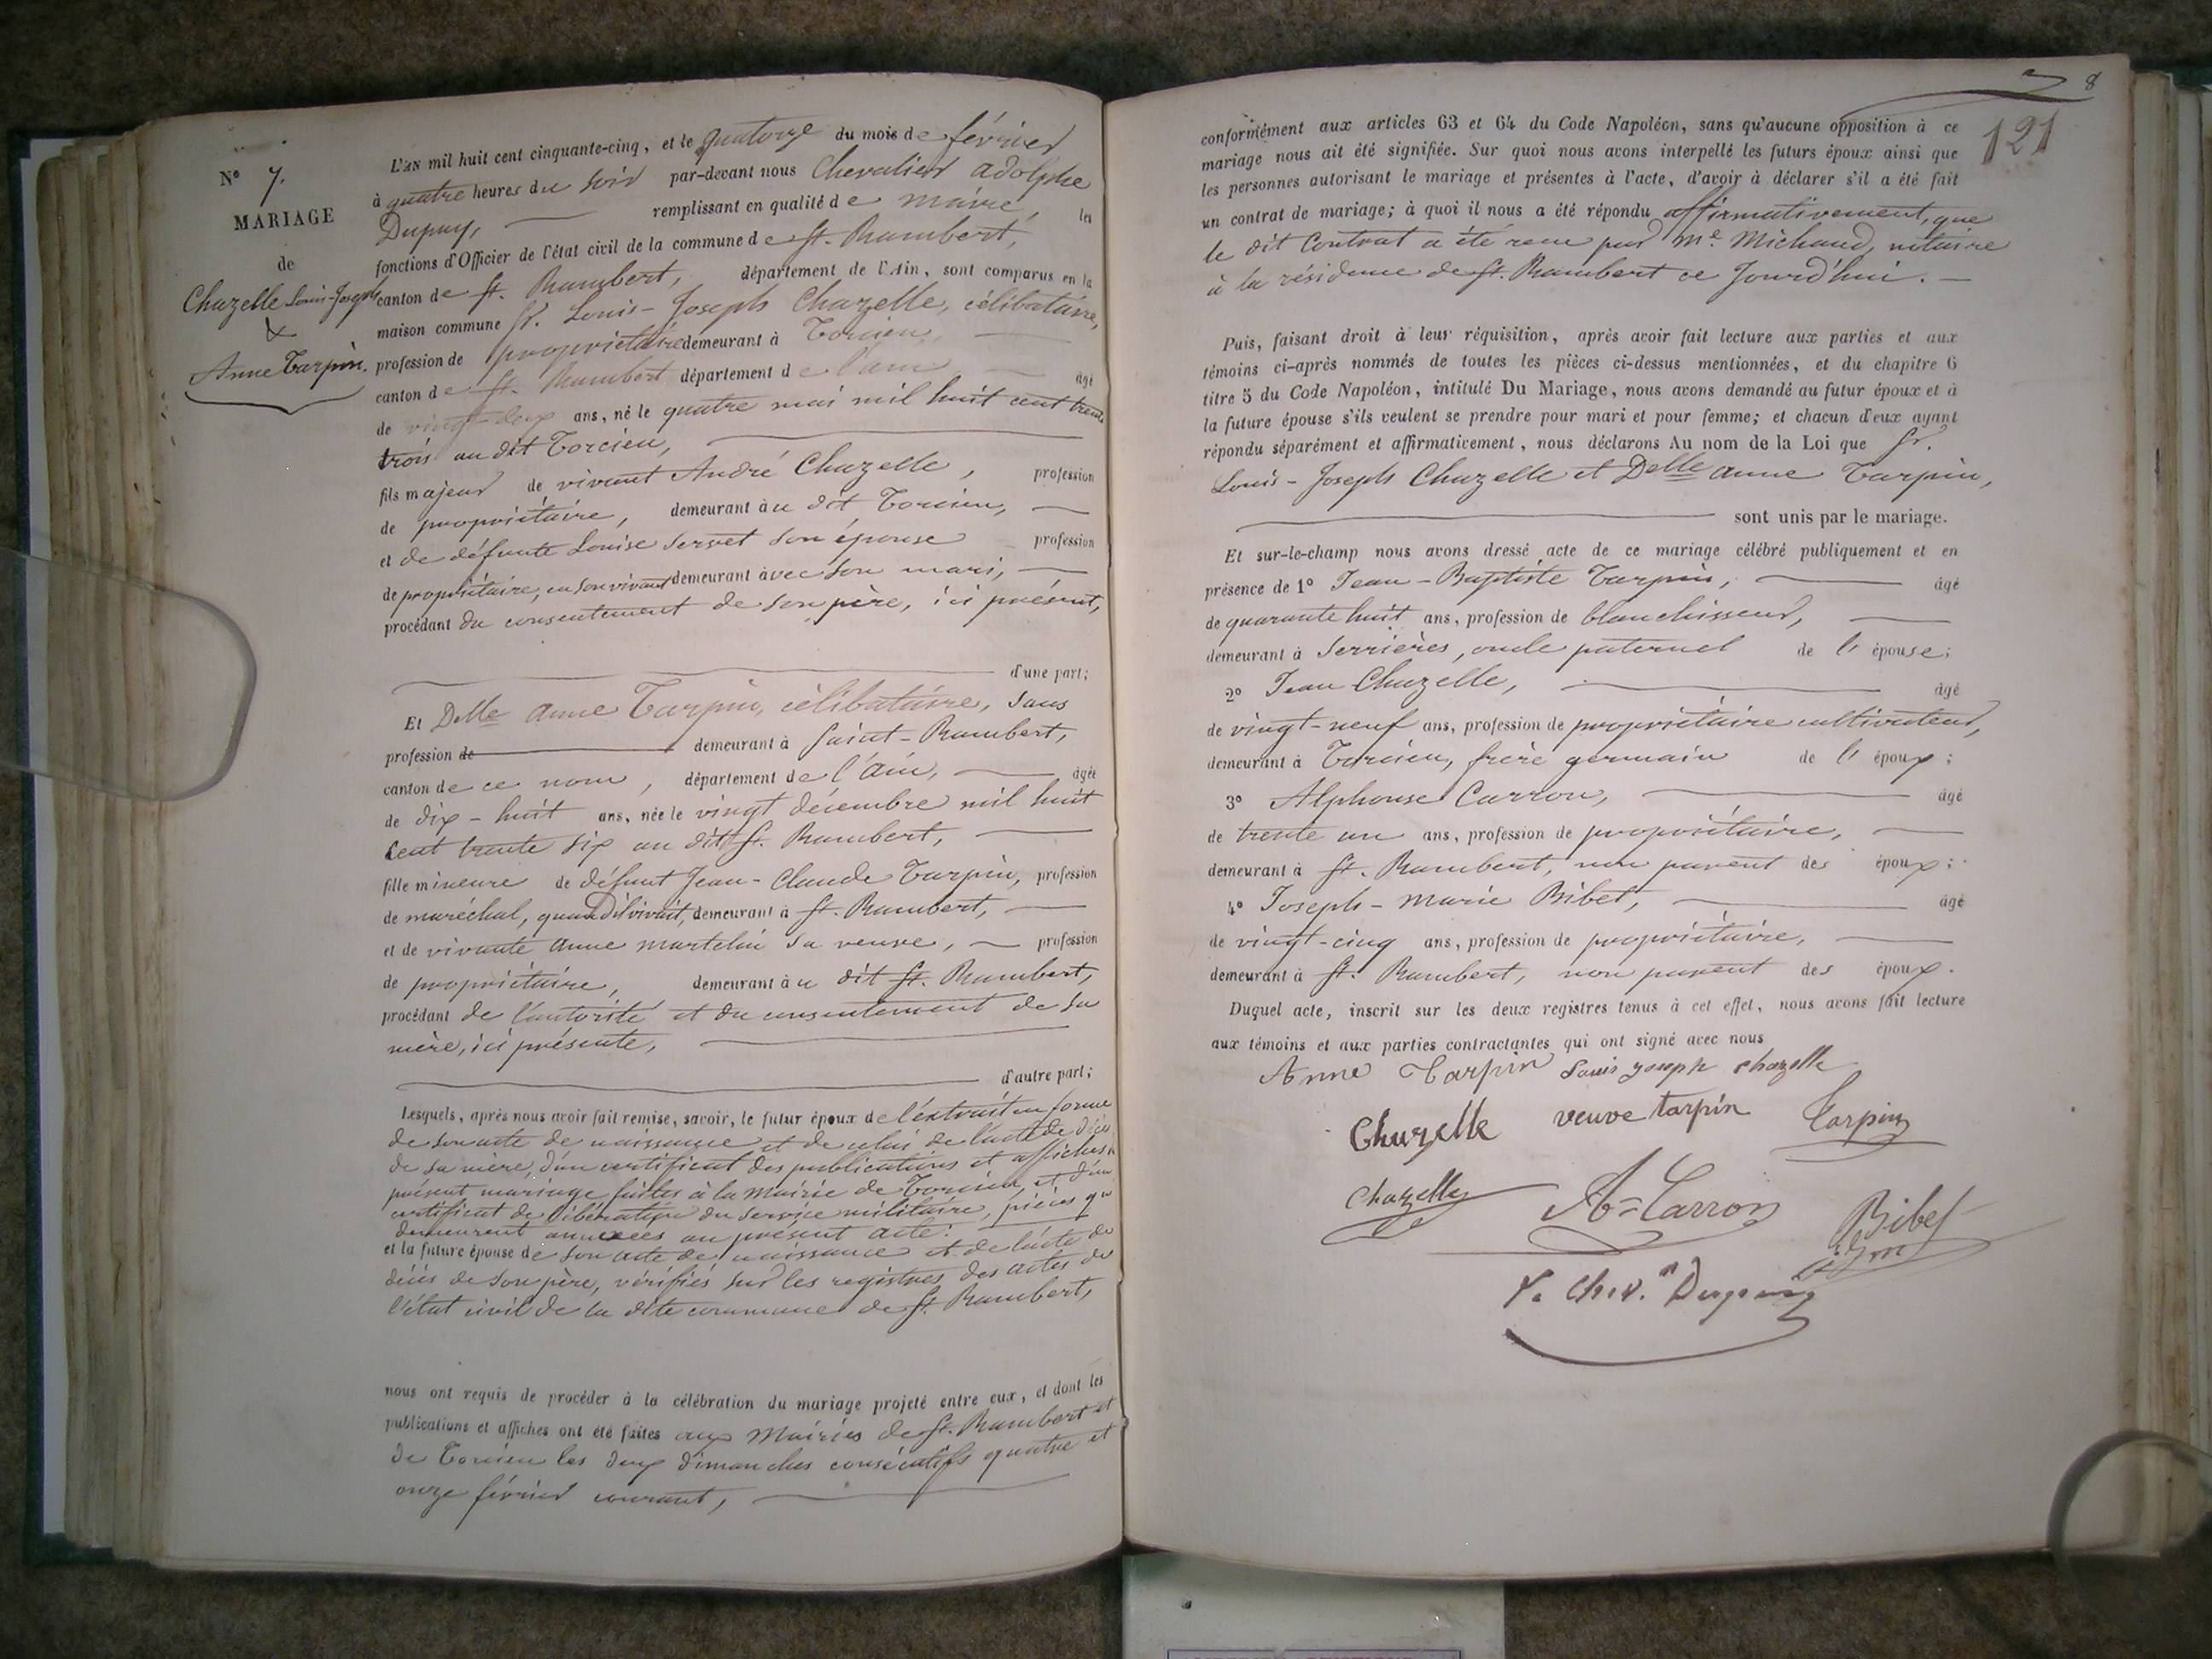 N° 7.
MARIAGE
de
Chazelle Louis-Joseph
&
Anne Tarpin.
L'AN mil huit cent cinquante-cinq, et le quatorze du mois de février
à quatre heures du soir par-devant nous Chevalier Adolphe
Dupuy, remplissant en qualité de maire, les
fonctions d'Officier de l'état civil de la commune de St. Rambert,
canton de St. Rambert, département de l'Ain, sont comparus en la
maison commune Sr. Louis-Joseph Chazelle, célibataire,
profession de propriétaire demeurant à Torcieu,
canton de St. Rambert département de l'ain âgé
de vingt-deux ans, né le quatre mai mil huit cent trente
trois au dit Torcieu,
fils majeur de vivant André Chazelle, profession
de propriétaire, demeurant au dit Torcieu,
et de défunte Louise Servet son épouse profession
de propriétaire, en son vivant demeurant avec son mari,
procédant du consentement de son père, ici présent,
d'une part;
Et Delle Anne Tarpin, célibataire, sans
profession de demeurant à Saint-Rambert,
canton de ce nom, département de l'Ain, âgée
de dix-huit ans, née le vingt décembre mil huit
cent trente six au dit St. Rambert,
fille mineure de défunt Jean-Claude Tarpin, profession
de maréchal, quand il vivait, demeurant à St. Rambert,
et de vivante Anne Martelin sa veuve, profession
de propriétaire, demeurant au dit St. Rambert,
procédant de l'autorité et du consentement de sa
mère, ici présente,
d'autre part;
Lesquels, après nous avoir fait remise, savoir, le futur époux de l'extrait en forme
de son acte de naissance et de celui de l'acte de décès
de sa mère, d'un certificat des publications et affiches du
présent mariage faites à la Mairie de Torcieu, et d'un
certificat de libération du service militaire, pièces qui
demeurent annexées au présent acte:
et la future épouse de son acte de naissance et de l'acte de
décès de son père, vérifiés sur les registres des actes de
l'état civil de la dite commune de St. Rambert,
nous ont requis de procéder à la célébration du mariage projeté entre eux, et dont les
publications et affiches ont été faites aux Mairies de St. Rambert et
de Torcieu les deux dimanches consécutifs quatre et
onze février courant,
8
121
conformément aux articles 63 et 64 du Code Napoléon, sans qu'aucune opposition à ce
mariage nous ait été signifiée. Sur quoi nous avons interpellé les futurs époux ainsi que
les personnes autorisant le mariage et présentes à l'acte, d'avoir à déclarer s'il a été fait
un contrat de mariage; à quoi il nous a été répondu affirmativement, que
le dit Contrat a été reçu par Me. Michaud, notaire
à la résidence de St. Rambert ce jourd'hui.
Puis, faisant droit à leur réquisition, après avoir fait lecture aux parties et aux
témoins ci-après nommés de toutes les pièces ci-dessus mentionnées, et du chapitre 6
titre 5 du Code Napoléon, intitulé Du Mariage, nous avons demandé au futur époux et à
la future épouse s'ils veulent se prendre pour mari et pour femme; et chacun d'eux ayant
répondu séparément et affirmativement, nous déclarons Au nom de la Loi que Sr.
Louis-Joseph Chazelle et Delle Anne Tarpin,
sont unis par le mariage.
Et sur-le-champ nous avons dressé acte de ce mariage célébré publiquement et en
présence de 1° Jean-Baptiste Tarpin, âgé
de quarante huit ans, profession de blanchisseur,
demeurant à Serrières, oncle paternel de l'épouse;
2° Jean Chazelle, âgé
de vingt-neuf ans, profession de propriétaire cultivateur,
demeurant à Torcieu, frère germain de l'époux;
3° Alphonse Carron, âgé
de trente un ans, profession de propriétaire,
demeurant à St. Rambert, non parent des époux;
4° Joseph-Marie Bibet, âgé
de vingt-cinq ans, profession de propriétaire,
demeurant à St. Rambert, non parent des époux.
Duquel acte, inscrit sur les deux registres tenus à cet effet, nous avons fait lecture
aux témoins et aux parties contractantes qui ont signé avec nous
Anne Tarpin Louis joseph chazelle
Chazelle veuve tarpin Tarpin
Chazelle A=Carron Bibet
Chev. Dupuy